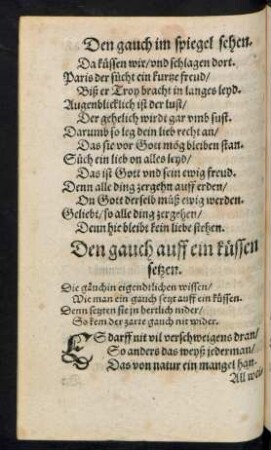 Den gauch im spiegel sehen.
Da küssen wir/vnd schlagen dort.
Paris der sücht ein kurtze freud/
Biß er Troy bracht in langes leyd.
Augenblicklich ist der lust/
Der gehelich wirdt gar vmb sust.
Darumb so leg dein lieb recht an/
Das sie vor Gott mög bleiben stan.
Süch ein lieb on alles leyd/
Das ist Gott vnd sein ewig freud.
Denn alle ding zergehn auff erden/
On Gott derselb müß ewig werden.
Geliebt/so alle ding zergehen/
Denn hie bleibt kein liebe stehen.
Den gauch auff ein küssen
setzen.
Die gäuchin eigendtlichen wissen/
Wie man ein gauch setzt auff ein küssen.
Denn setzten sie jn hertlich nider/
So kem der zarte gauch nit wider.
ES darff nit vil verschweigens dran/
So anders das weyß jederman/
Das von natur ein mangel han.
All weib